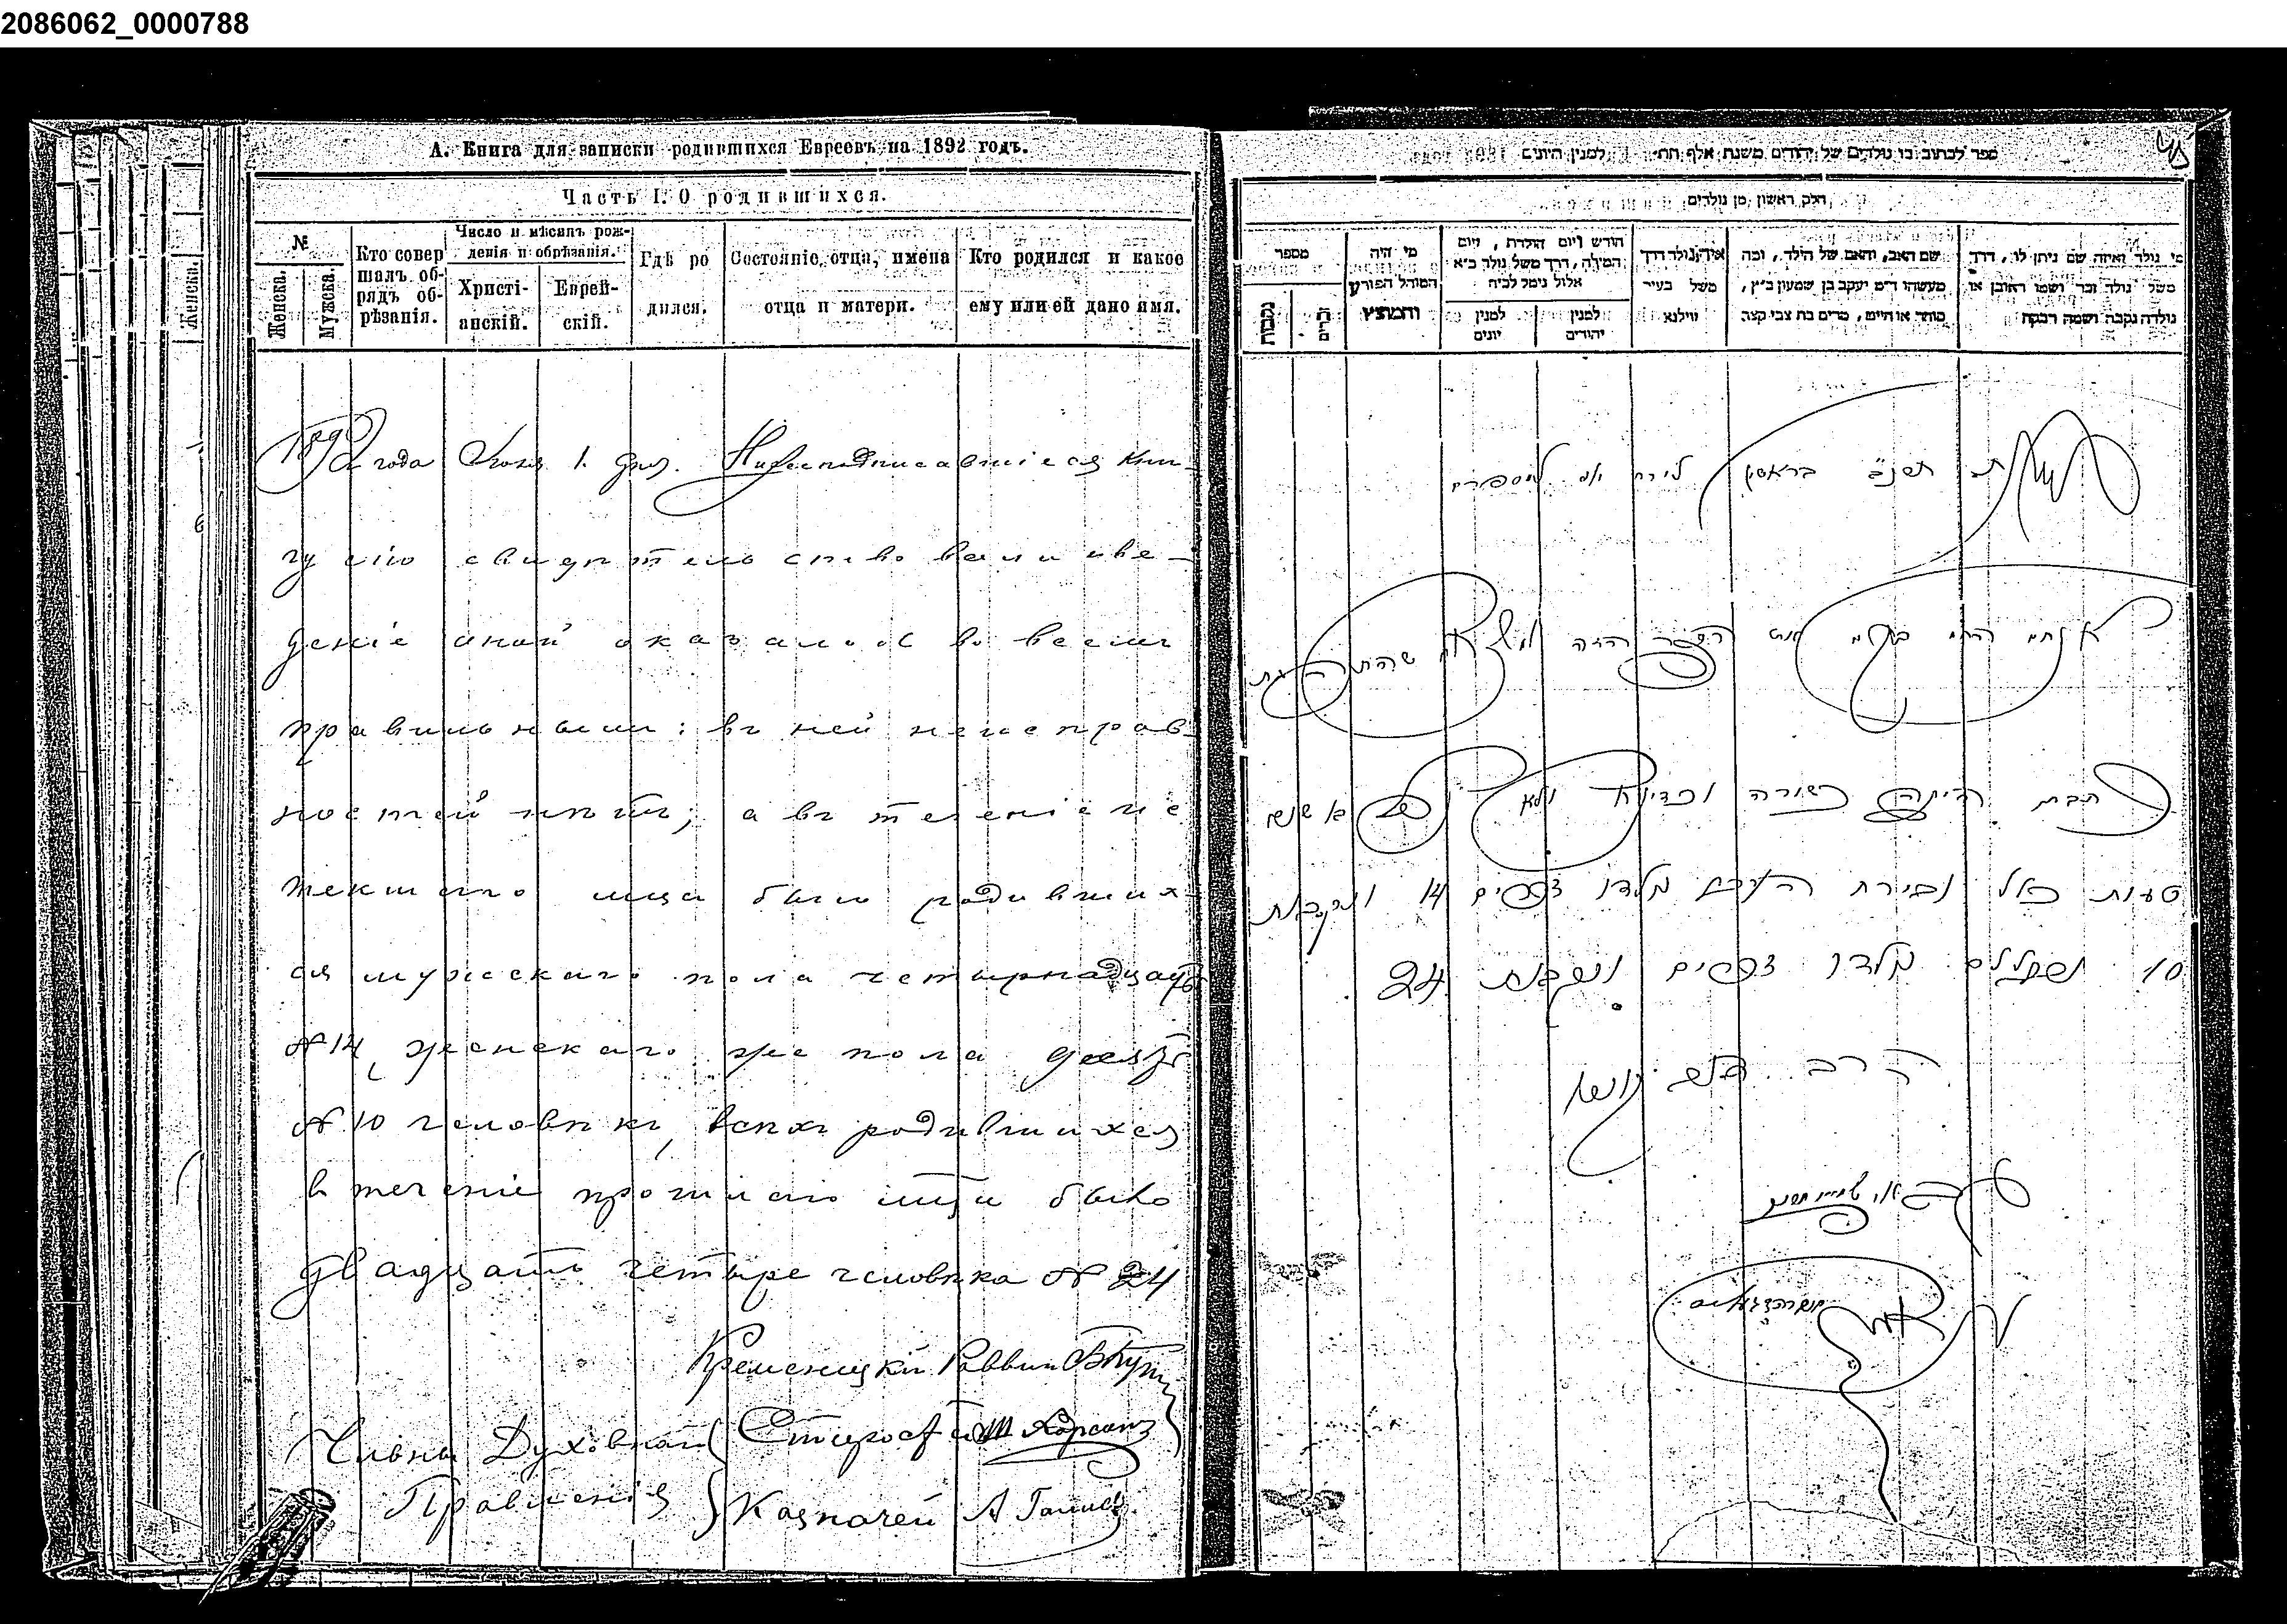 2086062_0000788
А. Книга для записки родившихся Евреевъ на 1892 годъ.
Часть I. О родившихся.
№
Женска.
Мужска.
Кто совершалъ обрядъ обрѣзанія.
Число и мѣсяцъ рожденія и обрѣзанія.
Христіанскій.
Еврейскій.
Гдѣ родился.
Состояніе отца, имена отца и матери.
Кто родился и какое ему или ей дано имя.
Женска.
1892 года Іюня 1. дня. Нижеподписавшіеся кни-
гу сію свидѣтельствовали и ве-
деніе оной оказалось во всемъ
правильнымъ: въ ней неисправ-
ностей нѣтъ; а въ теченіе ис
текшаго м-ца было родивших
ся мужскаго пола четырнадцать
№ 14, женскаго же пола десять
№ 10 человѣкъ, всѣхъ родившихся
в теченіе прошлаго м-ца было
двадцать четыре человѣка № 24
Кременецкій Раввинъ
Члены Духовнаго Староста
Правленія Казначей А
ספר לכתוב בו נולדים של יהודים משנת אלף תת למנין היונים
חלק ראשון מן נולדים
מספר
נקבות
זכרים
מי היה המוהל הפורע והמוצץ
חודש ויום הולדת, ויום המילה, דרך משל נולד כ״א אלול נימל לכ״ח
למנין יונים
למנין יהודים
איך נולד דרך משל בעיר ווילנא
שם האב, והאם של הילד, ומה מעשהו ד״מ יעקב בן שמעון כ״ץ, סוחר או חייט, מרים בת צבי קצב
מי נולד ואיזה שם ניתן לו, דרך משל נולד זכר ושמו ראובן או נולדה נקבה ושמה רבקה
תרנ״ב בראשון לירח יוני למספרם
אנחנו החתומי בקרנו את הספר הזה ומצאנו שהתנהגות
כתבת היתה כשורה וכדין ולא נפל בו שום
טעות ובירח העבר נולדו זכרים 14 ונקבות
10 ובכלל נולדו זכרים ונקבות 24
הרב